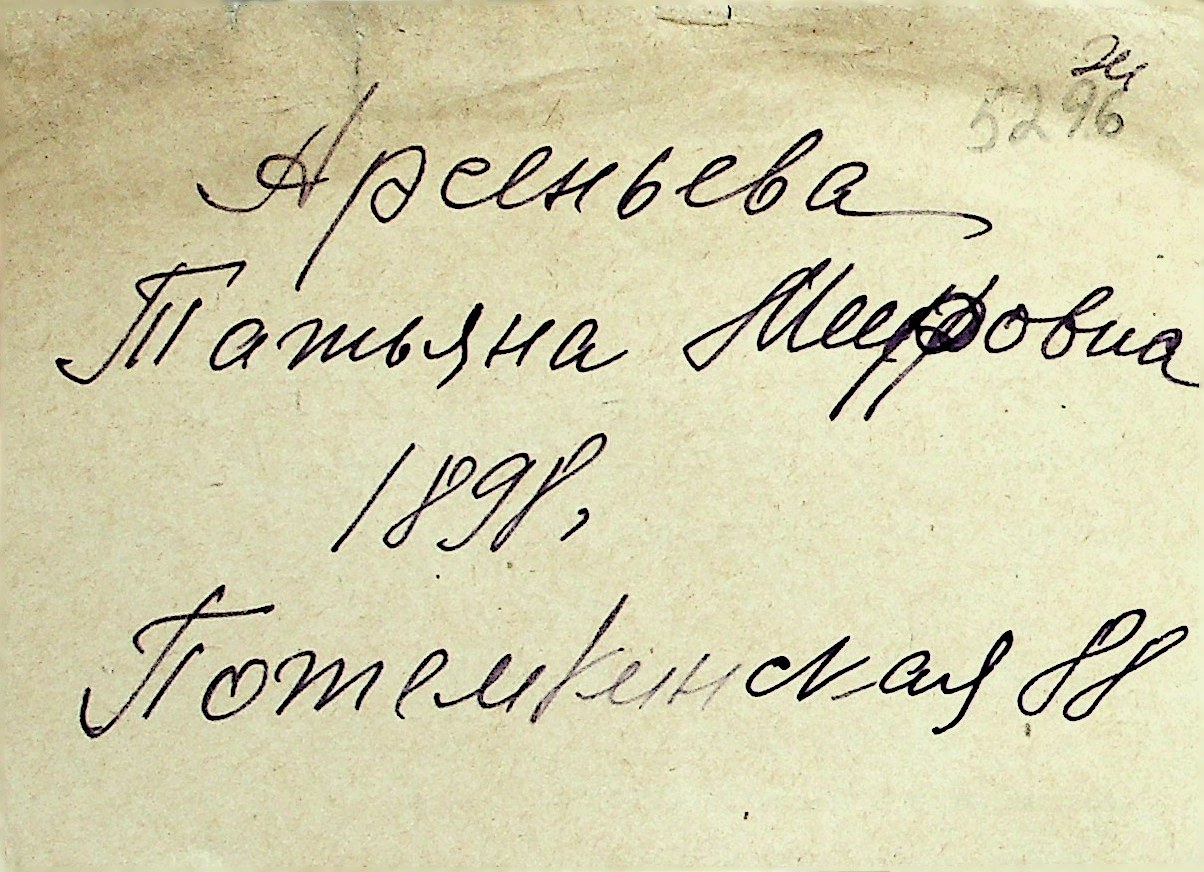 5296
Арсеньева
Татьяна Мировна
1898,
Потемкинская 88